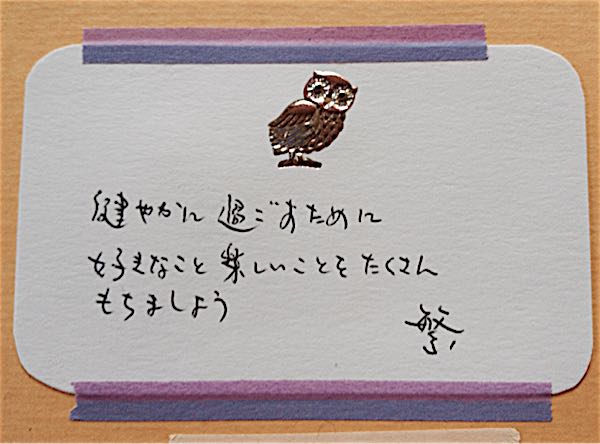 健やかに 過ごすために
好きなこと 楽しいことを たくさん
もちましょう
繁